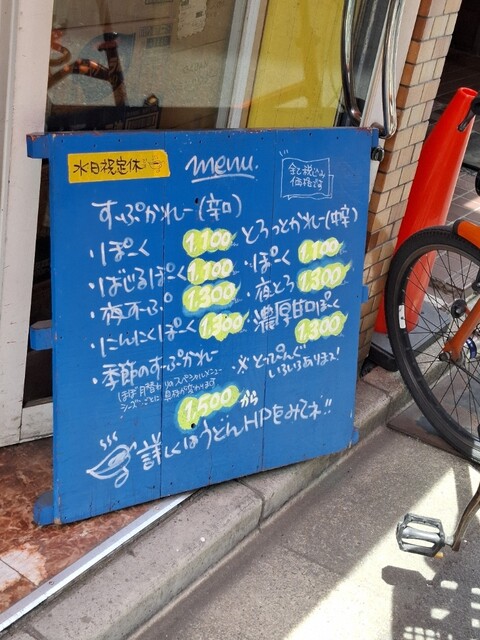 水日祝定休
menu
全て税込み
価格です
すーぷかれー(辛口)
・ぽーく 1,100
・ばじるぽーく 1,100
1,300
・にんにくぽーく 1,300
・季節のすーぷかれー
ほぼ月替わりのスペシャルメニュー
シーズンごとに
1,500から
とろっとかれー(中辛)
・ぽーく 1,100
・夜とろ 1,300
・濃厚甘口ぽーく 1,300
※とっぴんぐ
いろいろあります!
詳しくはうどんHPをみてネ!!